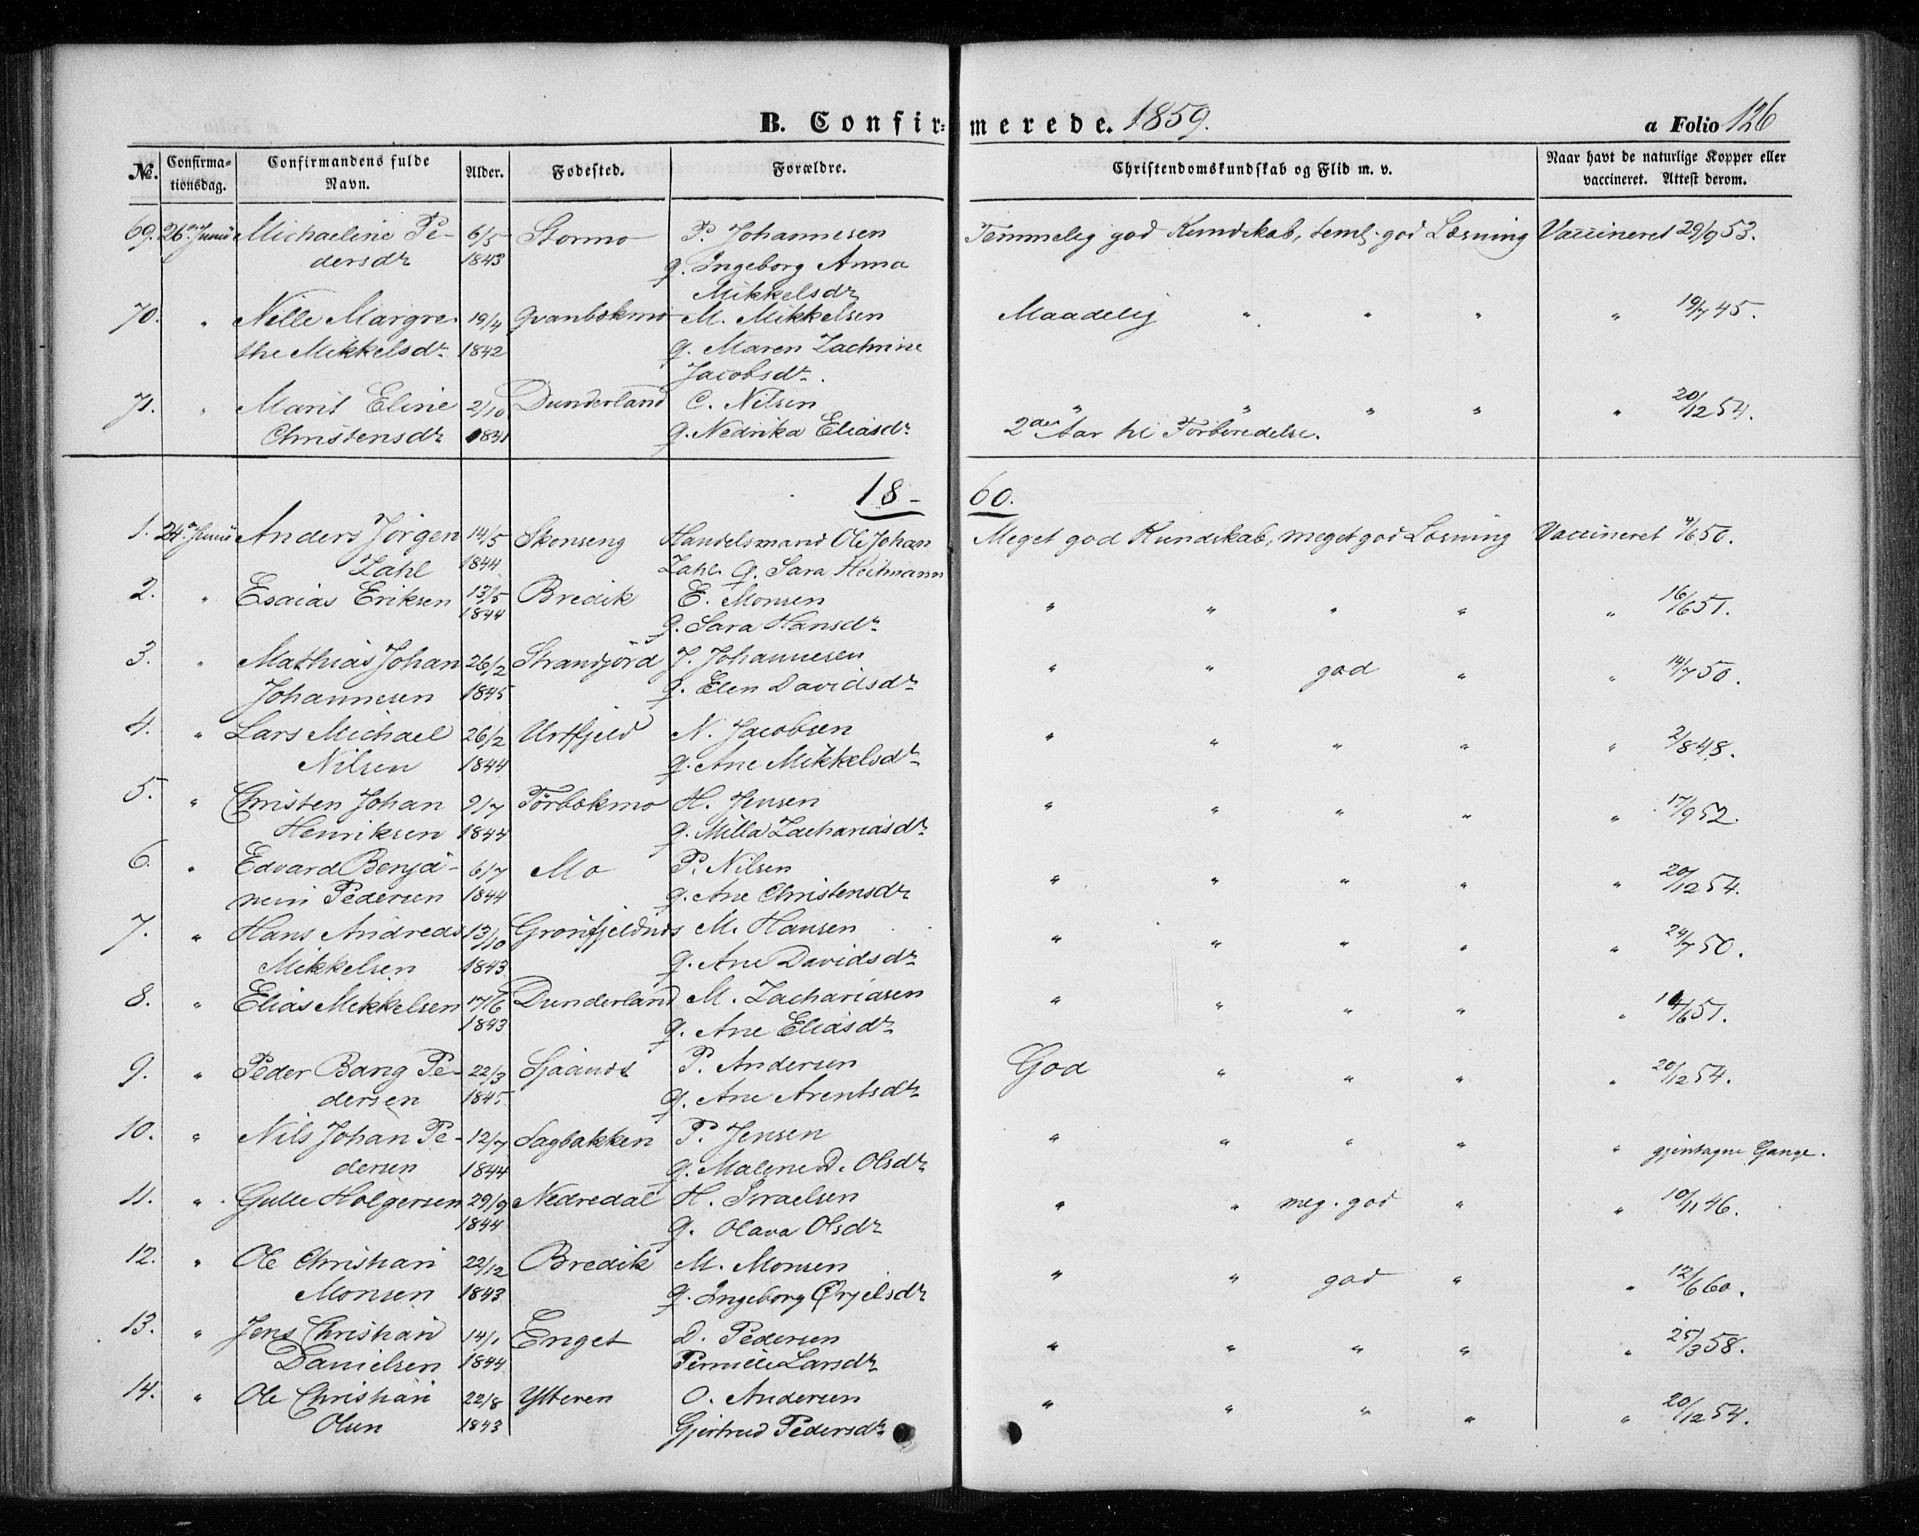 B. Confirmerede. 1859.
a Folio 126
No. Confirmationsdag. Confirmandens fulde Navn. Alder. Fødested. Forældre. Christendomskundskab og Flid m. v. Naar havt de naturlige Kopper eller vaccineret. Attest derom.
69. 26de Junii Michaeline Pe- 6/5 Stormo P. Johannesen Temmelig god Kundskab, teml. god Læsning Vaccineret 29/9 53.
dersdr 1843 q. Ingeborg Anna
Mikkelsdr
70. " Nille Margre- 19/4 Qvanbækmo M. Mikkelsen Maadelig " " " " 19/7 45.
the Mikkelsdr 1842 q. Maren Zachrine
Jacobsdr.
71. " Marit Eline 2/10 Dunderland C. Nilsen " " " " " 20/12 54.
Christensdr 1841 q. Nedrika Eliasdr 2det Aar til Forberedelse.
18-60.
1. 24de Junii Anders Jörgen 14/5 Skonseng Handelsmand Ole Johan Meget god Kundskab, meget god Læsning Vaccineret 4/6 50.
Zahl 1844 Zahl q. Sara Heitmann
2. " Esaias Eriksen 13/5 Bredik E. Monsen " " " " " 16/6 51.
1844 q. Sara Hansdr
3. " Mathias Johan 26/2 Strandjörd J. Johannesen " " god " " 14/7 50.
Johannesen 1845 q. Elen Davidsdr
4. " Lars Michael 26/2 Urtfjeld N. Jacobsen " " " " " 2/8 48.
Nilsen 1844 q. Ane Mikkelsdr
5. " Christen Johan 9/7 Törbækmo H. Jensen " " " " " 17/9 52.
Henriksen 1844 q. Milla Zachariasdr
6. " Edvard Benja- 6/7 Mo P. Nilsen " " " " " 20/12 54.
min Pedersen 1844 q. Ane Christensdr
7. " Hans Andreas 13/10 Grönfjeldnæs M. Hansen " " " " " 24/7 50.
Mikkelsen 1843 q. Ane Davidsdr
8. " Elias Mikkelsen 17/6 Dunderland M. Zachariasen " " " " " 14/6 51.
1843 q. Ane Eliasdr
9. " Peder Bang Pe- 22/3 Sjaanæs P. Andersen God " " " " 20/12 54.
dersen 1845 q. Ane Arentsdr
10. " Nils Johan Pe- 12/7 Sagbakken P. Jensen " " " " " gjentagne Gange.
dersen 1844 q. Malene D. Olsdr
11. " Gulle Holgersen 29/9 Nedredal H. Israelsen " " meg. god " " 10/11 46.
1844 q. Olava Olsdr
12. " Ole Christian 22/12 Bredik M. Monsen " " god " " 12/6 60.
Monsen 1843 q. Ingeborg Örjelsdr
13. " Jens Christian 14/1 Enget D. Pedersen " " " " " 25/3 58.
Danielsen 1844 Pernille Larsdr
14. " Ole Christian 22/8 Ytteren O. Andersen " " " " " 20/12 54.
Olsen 1843 Gjertrud Pedersdr